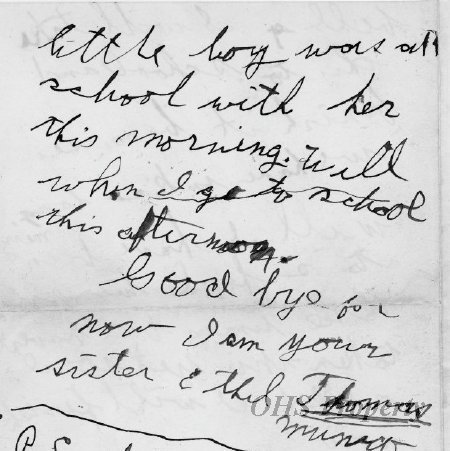 little boy was at
school with her
this morning. Will
when I go to school
this afternoon.
Good bye for
now I am your
sister Ethel Thomas
OHS Property
P.S.